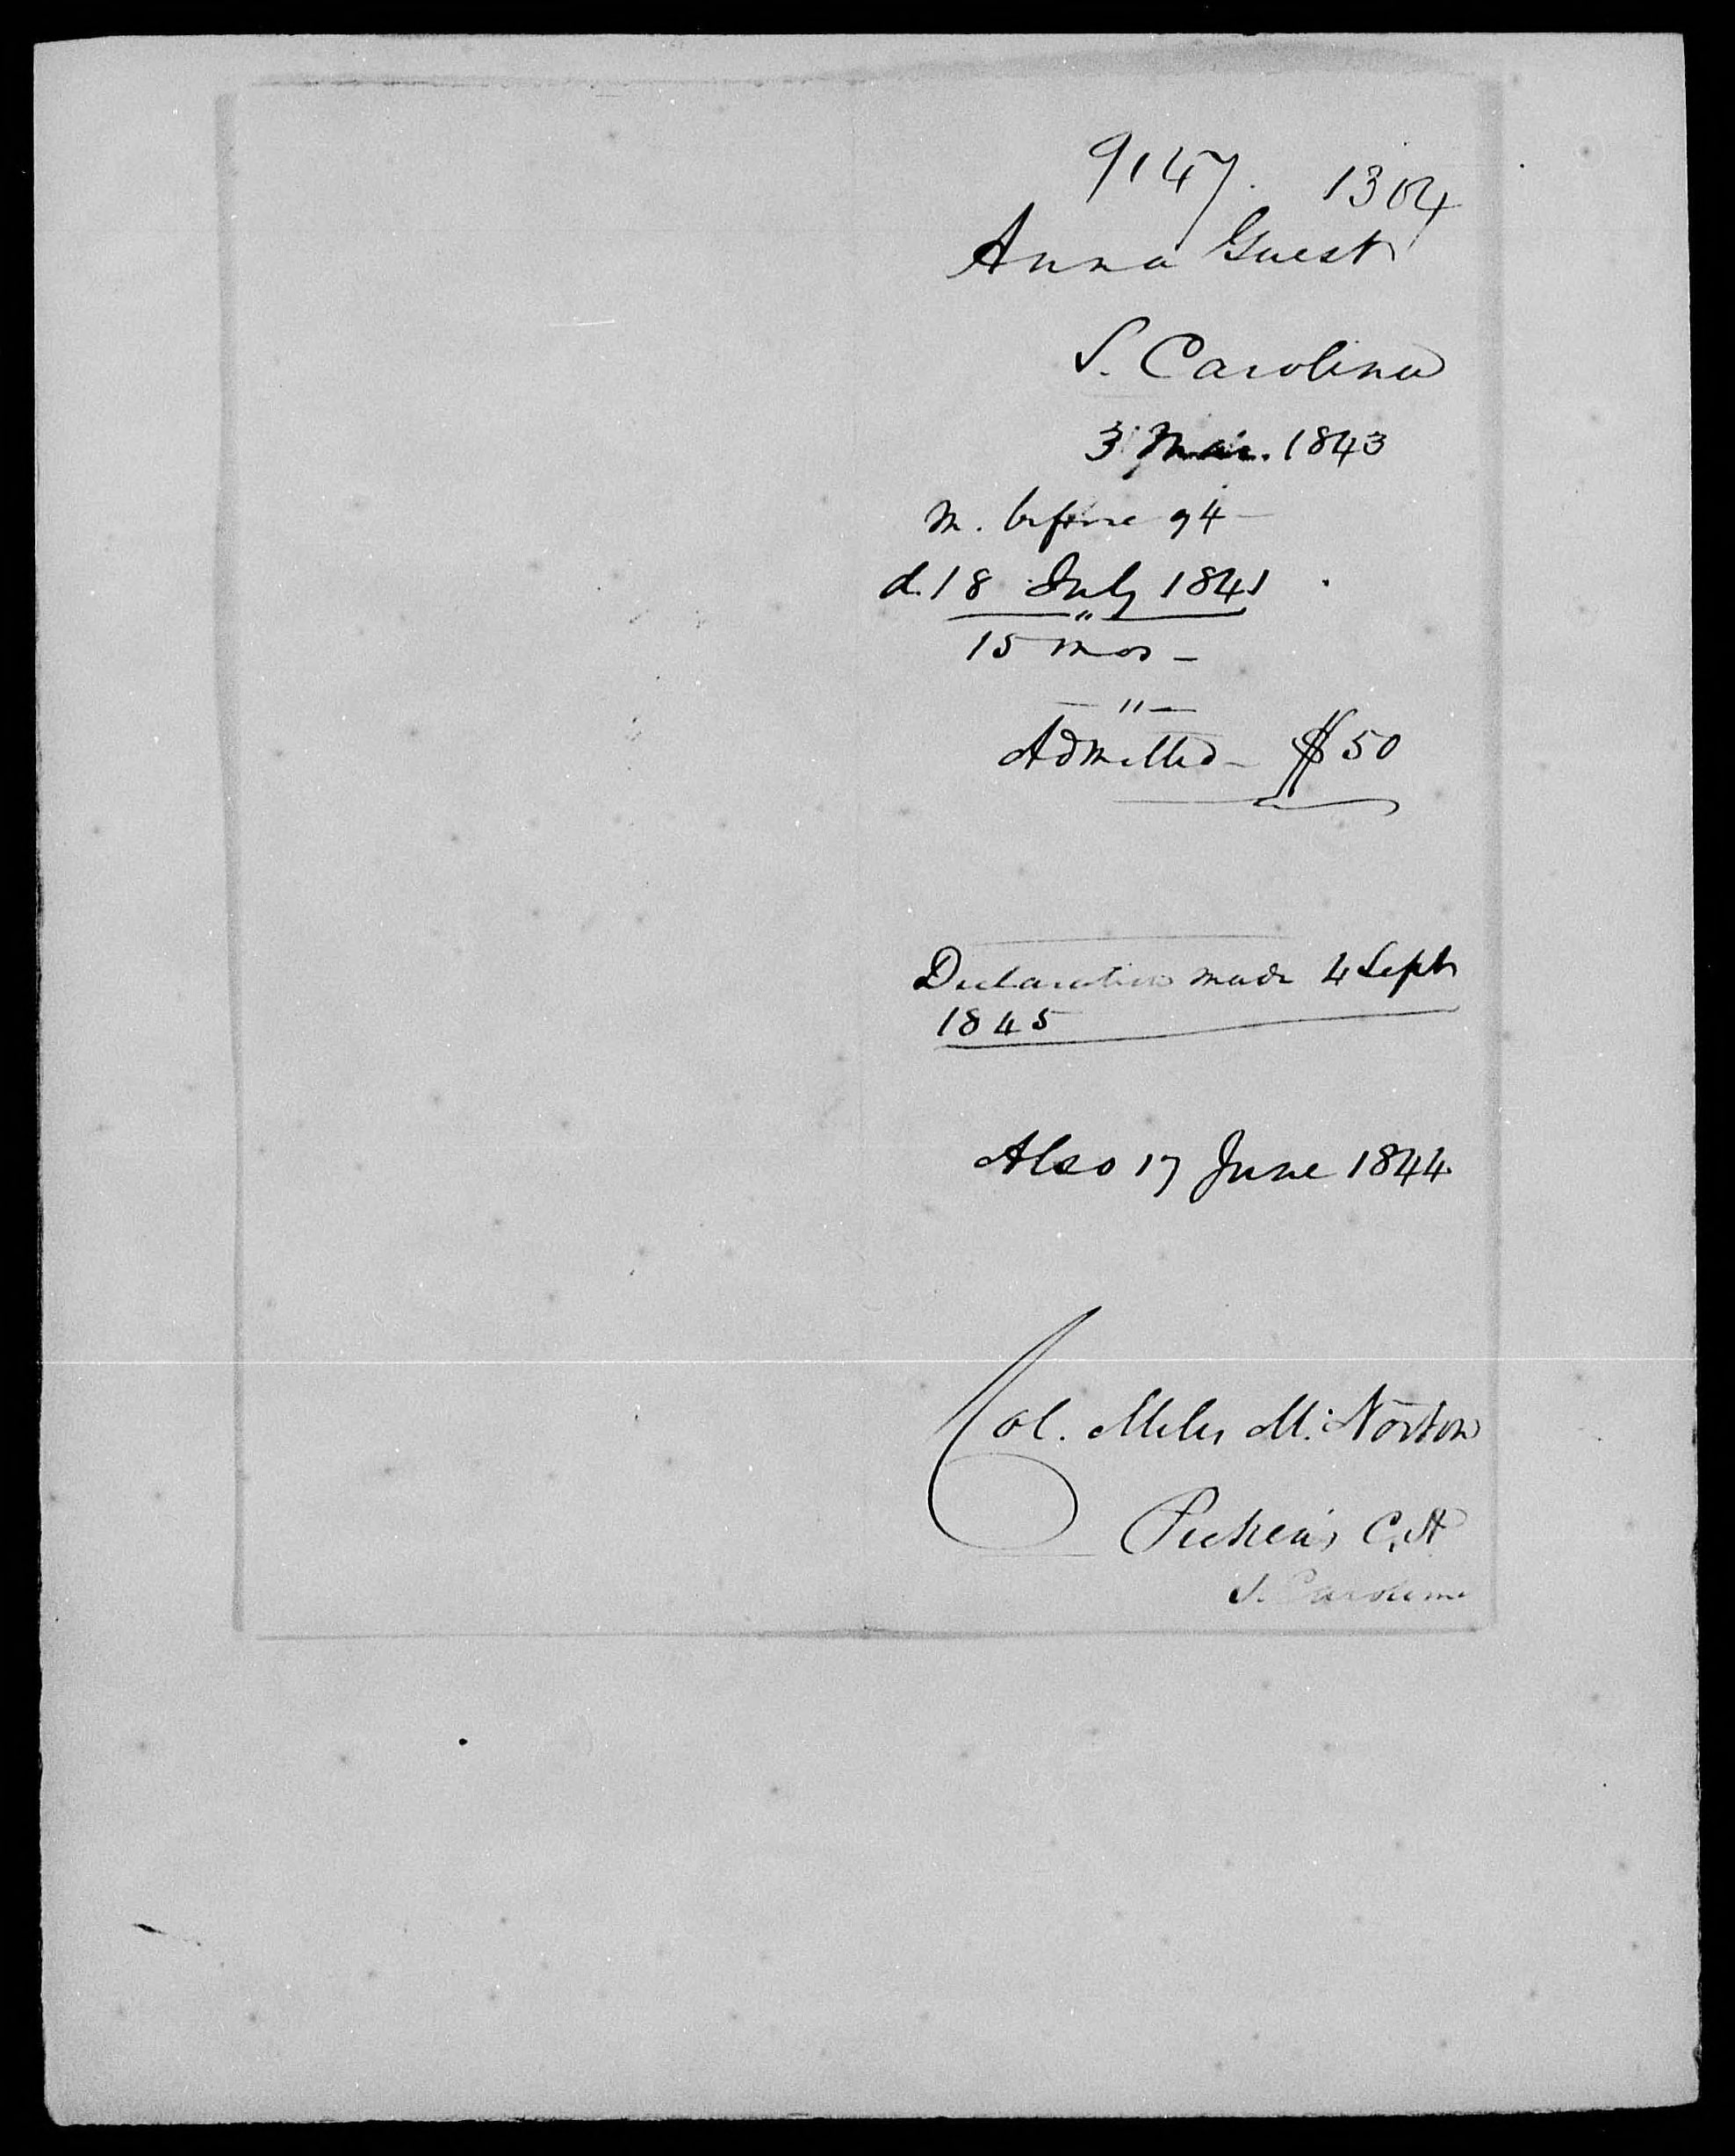 9147. 1304
Anna Guest
S. Carolina
3 Mar. 1843
m. before 94 -
d. 18 July 1841
"
15 mos -
- " -
Admitted - $50
Declaration made 4 Sept
1845
Also 17 June 1844.
Col. Miles M. Norton
Pickens C. H
S. Carolina